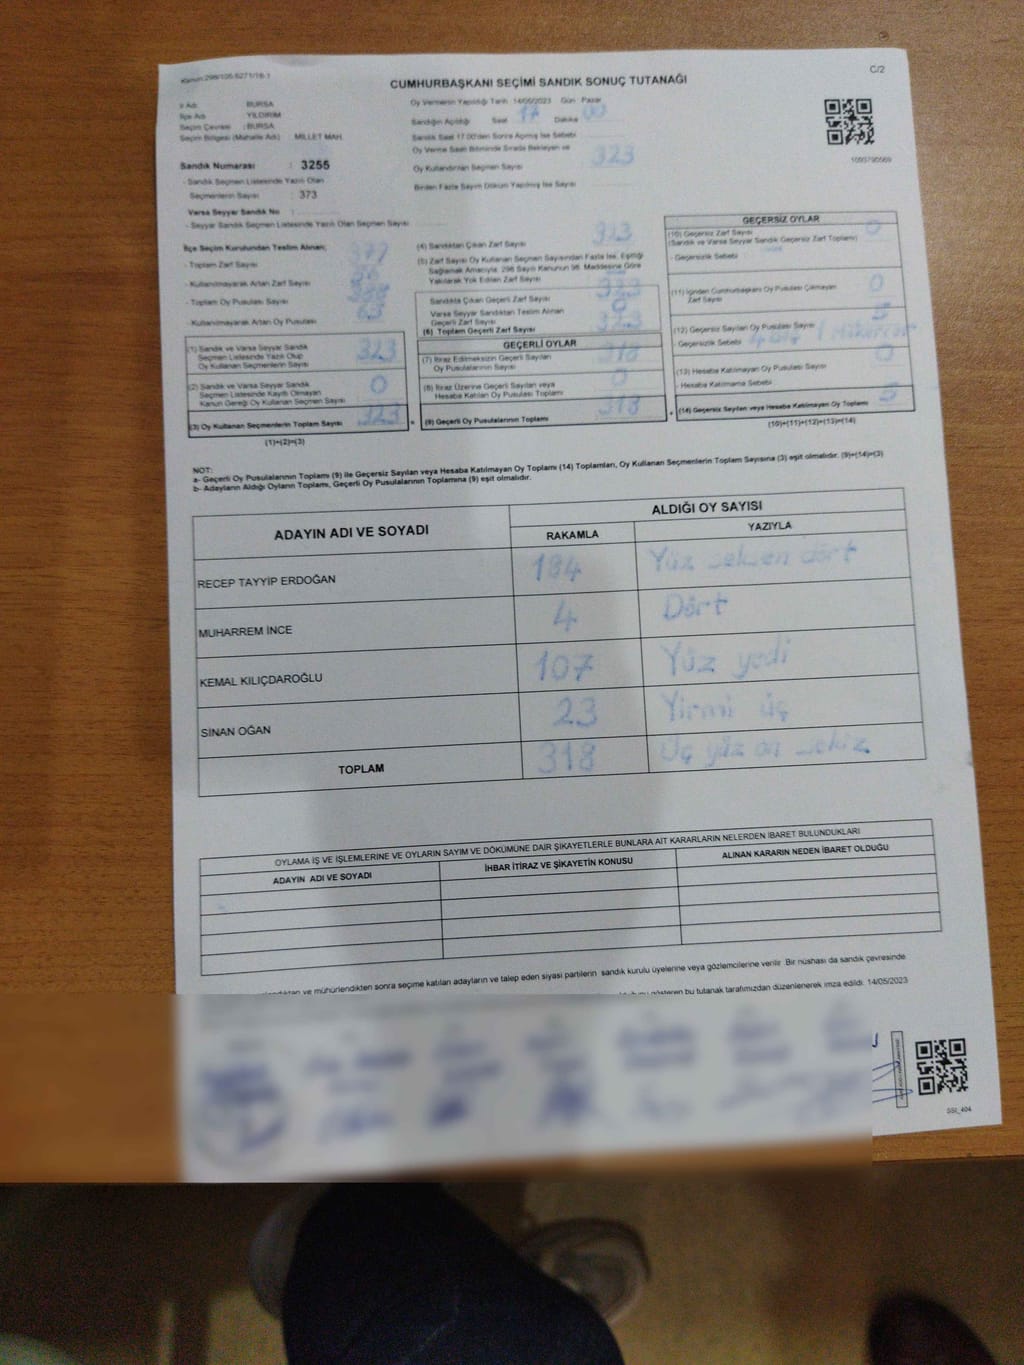 Kanun:298/105-6271/16-1
C/2
CUMHURBAŞKANI SEÇİMİ SANDIK SONUÇ TUTANAĞI
İl Adı : BURSA
İlçe Adı : YILDIRIM
Seçim Çevresi : BURSA
Seçim Bölgesi (Mahalle Adı) : MİLLET MAH.
Sandık Numarası : 3255
- Sandık Seçmen Listesinde Yazılı Olan
Seçmenlerin Sayısı : 373
Varsa Seyyar Sandık No :
- Seyyar Sandık Seçmen Listesinde Yazılı Olan Seçmen Sayısı
Oy Vermenin Yapıldığı Tarih 14/05/2023 Gün Pazar
Sandığın Açıldığı Saat 17 Dakika 00
Sandık Saat 17.00'den Sonra Açılmış İse Sebebi
Oy Verme Saati Bitiminde Sırada Bekleyen ve
Oy Kullandırılan Seçmen Sayısı 323
Birden Fazla Sayım Döküm Yapılmış İse Sayısı
1093790569
İlçe Seçim Kurulundan Teslim Alınan;
- Toplam Zarf Sayısı
- Kullanılmayarak Artan Zarf Sayısı
- Toplam Oy Pusulası Sayısı
- Kullanılmayarak Artan Oy Pusulası 63
(1) Sandık ve Varsa Seyyar Sandık
Seçmen Listesinde Yazılı Olup
Oy Kullanan Seçmenlerin Sayısı 323
(2) Sandık ve Varsa Seyyar Sandık
Seçmen Listesinde Kayıtlı Olmayan
Kanun Gereği Oy Kullanan Seçmen Sayısı 0
(3) Oy Kullanan Seçmenlerin Toplam Sayısı 323
(1)+(2)=(3)
(4) Sandıktan Çıkan Zarf Sayısı 323
(5) Zarf Sayısı Oy Kullanan Seçmen Sayısından Fazla İse, Eşitliği
Sağlamak Amacıyla, 298 Sayılı Kanunun 98. Maddesine Göre
Yakılarak Yok Edilen Zarf Sayısı
Sandıkta Çıkan Geçerli Zarf Sayısı 323
Varsa Seyyar Sandıktan Teslim Alınan
Geçerli Zarf Sayısı 0
(6) Toplam Geçerli Zarf Sayısı 323
GEÇERLİ OYLAR
(7) İtiraz Edilmeksizin Geçerli Sayılan
Oy Pusulalarının Sayısı 318
(8) İtiraz Üzerine Geçerli Sayılan veya
Hesaba Katılan Oy Pusulası Toplamı 0
(9) Geçerli Oy Pusulalarının Toplamı 318
GEÇERSİZ OYLAR
(10) Geçersiz Zarf Sayısı
(Sandık ve Varsa Seyyar Sandık Geçersiz Zarf Toplamı) 0
- Geçersizlik Sebebi
(11) İçinden Cumhurbaşkanı Oy Pusulası Çıkmayan
Zarf Sayısı 0
(12) Geçersiz Sayılan Oy Pusulası Sayısı 5
- Geçersizlik Sebebi
(13) Hesaba Katılmayan Oy Pusulası Sayısı 0
- Hesaba Katılmama Sebebi
(14) Geçersiz Sayılan veya Hesaba Katılmayan Oy Toplamı 5
(10)+(11)+(12)+(13)=(14)
NOT:
a- Geçerli Oy Pusulalarının Toplamı (9) ile Geçersiz Sayılan veya Hesaba Katılmayan Oy Toplamı (14) Toplamları, Oy Kullanan Seçmenlerin Toplam Sayısına (3) eşit olmalıdır. (9)+(14)=(3)
b- Adayların Aldığı Oyların Toplamı, Geçerli Oy Pusulalarının Toplamına (9) eşit olmalıdır.
ADAYIN ADI VE SOYADI
ALDIĞI OY SAYISI
RAKAMLA YAZIYLA
RECEP TAYYİP ERDOĞAN 184 Yüz seksen dört
MUHARREM İNCE 4 Dört
KEMAL KILIÇDAROĞLU 107 Yüz yedi
SİNAN OĞAN 23 Yirmi üç
TOPLAM 318 Üç yüz on sekiz
OYLAMA İŞ VE İŞLEMLERİNE VE OYLARIN SAYIM VE DÖKÜMÜNE DAİR ŞİKAYETLERLE BUNLARA AİT KARARLARIN NELERDEN İBARET BULUNDUKLARI
ADAYIN ADI VE SOYADI İHBAR İTİRAZ VE ŞİKAYETİN KONUSU ALINAN KARARIN NEDEN İBARET OLDUĞU
ve mühürlendikten sonra seçime katılan adayların ve talep eden siyasi partilerin sandık kurulu üyelerine veya gözlemcilerine verilir. Bir nüshası da sandık çevresinde
gösteren bu tutanak tarafımızdan düzenlenerek imza edildi. 14/05/2023
SSI_404